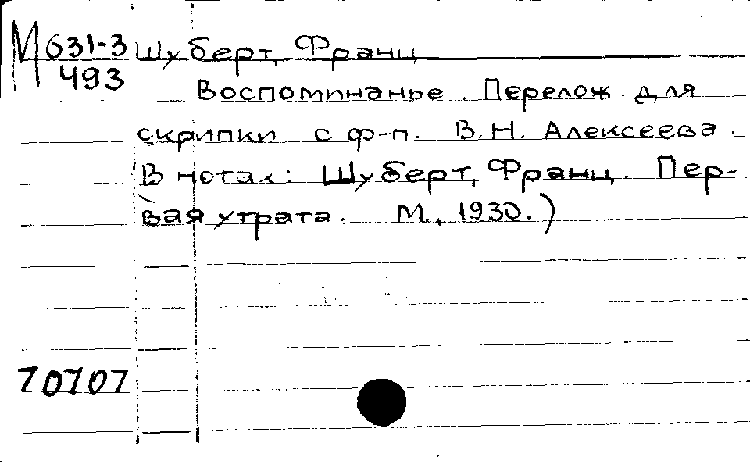 М 631-3 Шуберт, Франц
493
Воспоминанье. Перелож. для
скрипки с ф-п. В.Н. Алексеева.
(В нотах: Шуберт, Франц. Пер-
вая утрата. М., 1930.)
70707